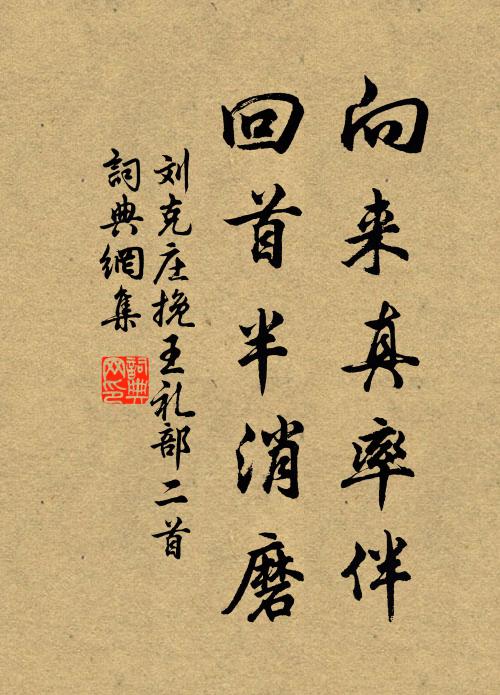 向来真率伴
回首半消磨
刘克庄挽王礼部二首
詞典網集
詞典网印